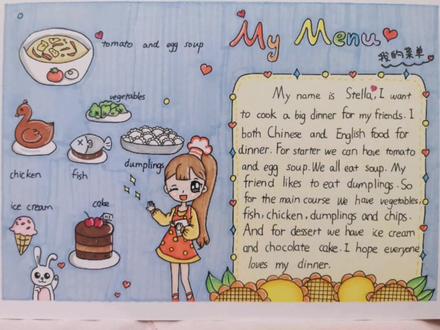 My Menu
我的菜单
tomato and egg soup
vegetables
chicken
fish
dumplings
ice cream
cake
My name is Stella, I want
to cook a big dinner for my friends. I
both Chinese and English food for
dinner. For starter we can have tomato
and egg soup. We all eat soup. My
friend likes to eat dumplings. So
for the main course we have vegetables,
fish, chicken, dumplings and chips.
And for dessert we have ice cream
and chocolate cake. I hope everyone
loves my dinner.